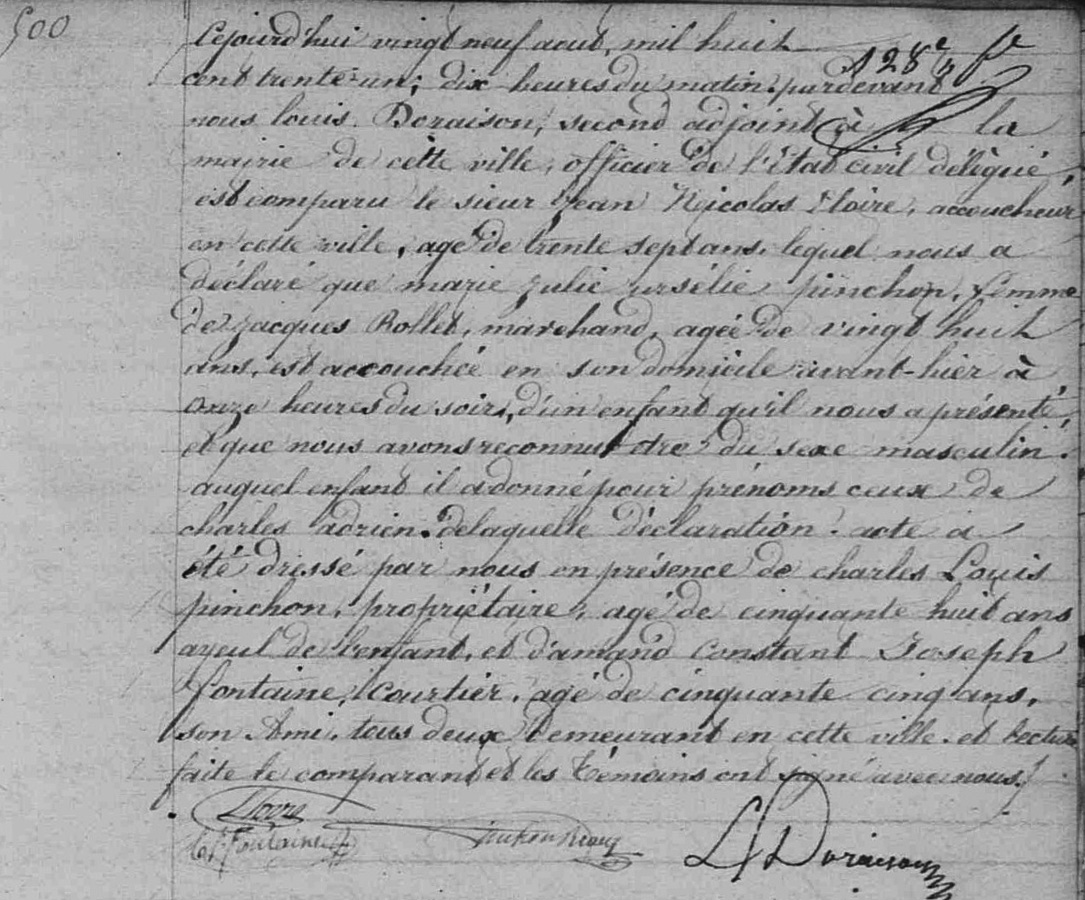 500
Cejourd'hui vingt neuf aout, mil huit
128e
cent trente-un; dix heures du matin. pardevant
nous louis Doraison, second adjoint à la
mairie de cette ville, officier de l'Etat civil délégué,
est comparu le sieur Jean Nicolas Hoire, accoucheur
en cette ville, agé de trente sept ans. lequel nous a
déclaré que marie Julie ursélie pinchon, femme
de Jacques Rollet, marchand, agée de vingt huit
ans, est accouchée en son domicile avant-hier à
onze heures du soir, d'un enfant qu'il nous a présenté,
et que nous avons reconnu etre du sexe masculin.
auquel enfant il a donné pour prénoms ceux de
charles adrien. delaquelle déclaration acte a
été dressé par nous en présence de charles Louis
pinchon, propriétaire, agé de cinquante huit ans
ayeul de l'enfant, et d'amand Constant Joseph
fontaine, Courtier, agé de cinquante cinq ans,
son Ami, tous deux demeurant en cette ville. et lecture
faite le comparant et les témoins ont signé avec nous.
Doraison
Fontaine